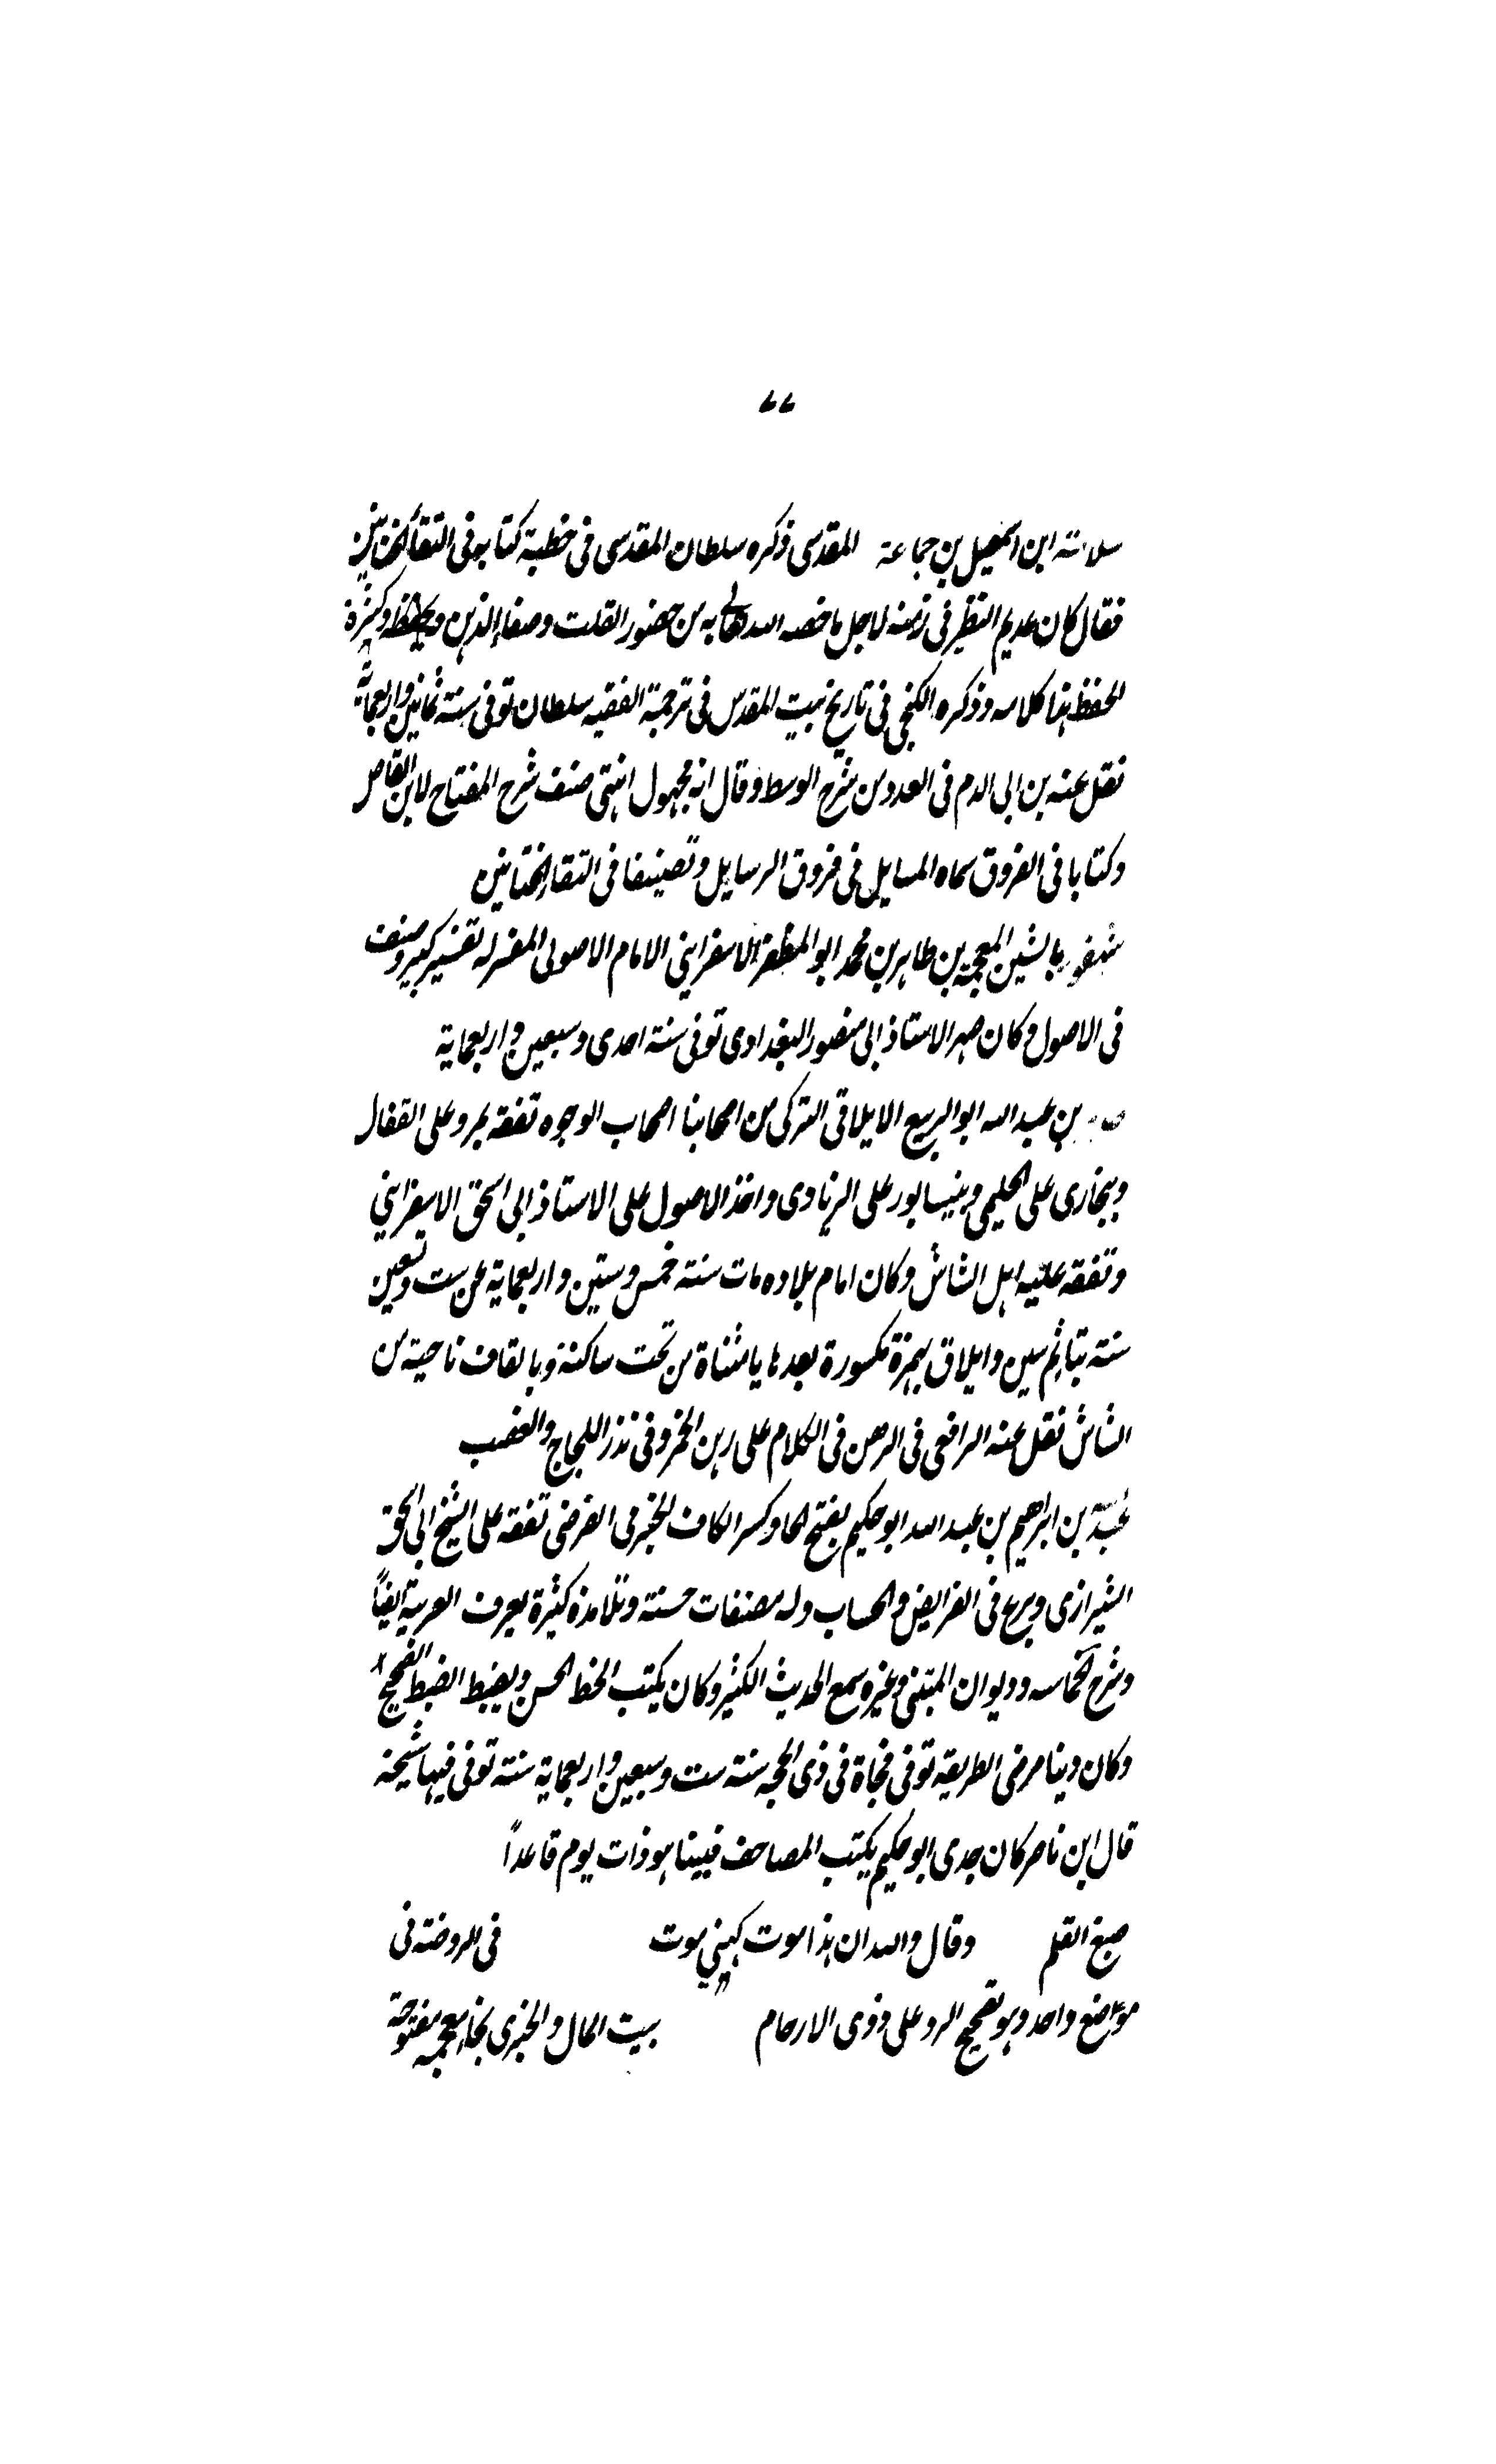 ۷۷
سلامة ابن اسمعيل بن جماعة المقدسى ذكره سلطان المقدسى فى خطبة كتابه فى التقاء الختانين
فقال كان عديم النظير فى زمنه لاجل ما خصه الله تعالى به من حضور القلب وصفاء الذهن وكثرة
الحفظ هذا كلامه وذكره الكنجى فى تاريخ بيت المقدس فى ترجمة الفقيه سلطان توفى سنة ثمانين واربعماية
نقل عنه بن ابى الدم فى العدد من شرح الوسيط وقال انه مجهول انتهى صنف شرح المفتاح لابن القاص
وكتابا فى الفروق سماه المسايل فى فروق الرسايل وتصنيفا فى التقاء الختانين
شهفور بالشين المعجمة بن طاهر بن محمد ابو المظفر الاسفراينى الامام الاصولى المفسر له تفسير كبير وصنف
فى الاصول وكان صهر الاستاذ ابى منصور البغدادى توفى سنة احدى وسبعين واربعماية
بن عبد الله ابو الربيع الايلاقى التركى من اصحابنا اصحاب الوجوه تفقه بمرو على القفال
وببخارى على الحليمى وبنيسابور على الزيادى واخذ الاصول على الاستاذ ابى اسحق الاسفراينى
وتفقه عليه اهل الشاش وكان امام بلاده مات سنة خمس وستين واربعماية عن ست وتسعين
سنة بتا ثم سين وايلاق بهمزة مكسورة بعدها يا مثناة من تحت ساكنة وبالقاف ناحية من
الشاش نقل عنه الرافعى فى الرهن فى الكلام على رهن الخمر وفى نذر اللجاج والغضب
عبد الله بن ابراهيم بن عبد الله ابو حكيم بفتح الحا وكسر الكاف الخبرى الفرضى تفقه على الشيخ ابى اسحق
الشيرازى وبرع فى الفرايض والحساب وله مصنفات حسنة وتلامذة كثيرة يعرف العربية ايضاً
وشرح الحماسه وديوان المتنبى وغيره سمع الحديث الكثير وكان يكتب الخط الحسن ويضبط الضبط الصحيح
وكان دينا مرضى الطريقه توفى فجاة فى ذى الحجه سنة ست وسبعين واربعماية سنة توفى فيها شيخه
قال ابن ناصر كان جدى ابو حكيم يكتب المصاحف فبينا هو ذات يوم قاعداً
القلم وقال والله ان هذا موت موت فى الروضة فى
موضع واحد وهو تصحيح الرد على ذوى الارحام بيت المال والخبرى بخا معجمه مفتوحة